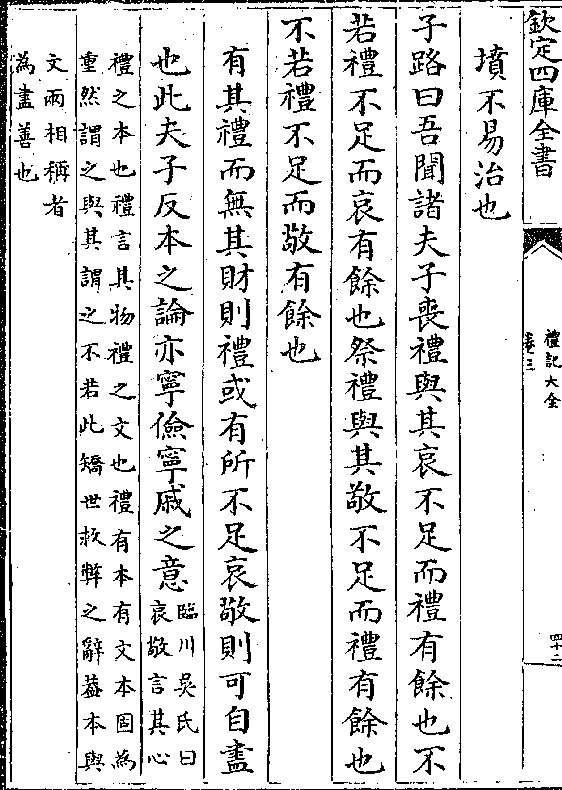 欽定四庫全書
禮記大全
卷三
四十二
墳不易治也
子路曰吾聞諸夫子喪禮與其哀不足而禮有餘也不
若禮不足而哀有餘也祭禮與其敬不足而禮有餘也
不若禮不足而敬有餘也
有其禮而無其財則禮或有所不足哀敬則可自盡
也此夫子反本之論亦寧儉寧戚之意
臨川吳氏曰
哀敬言其心
禮之本也禮言其物禮之文也禮有本有文本固為
重然謂之與其謂之不若此矯世救弊之辭葢本與
文兩相稱者
為盡善也